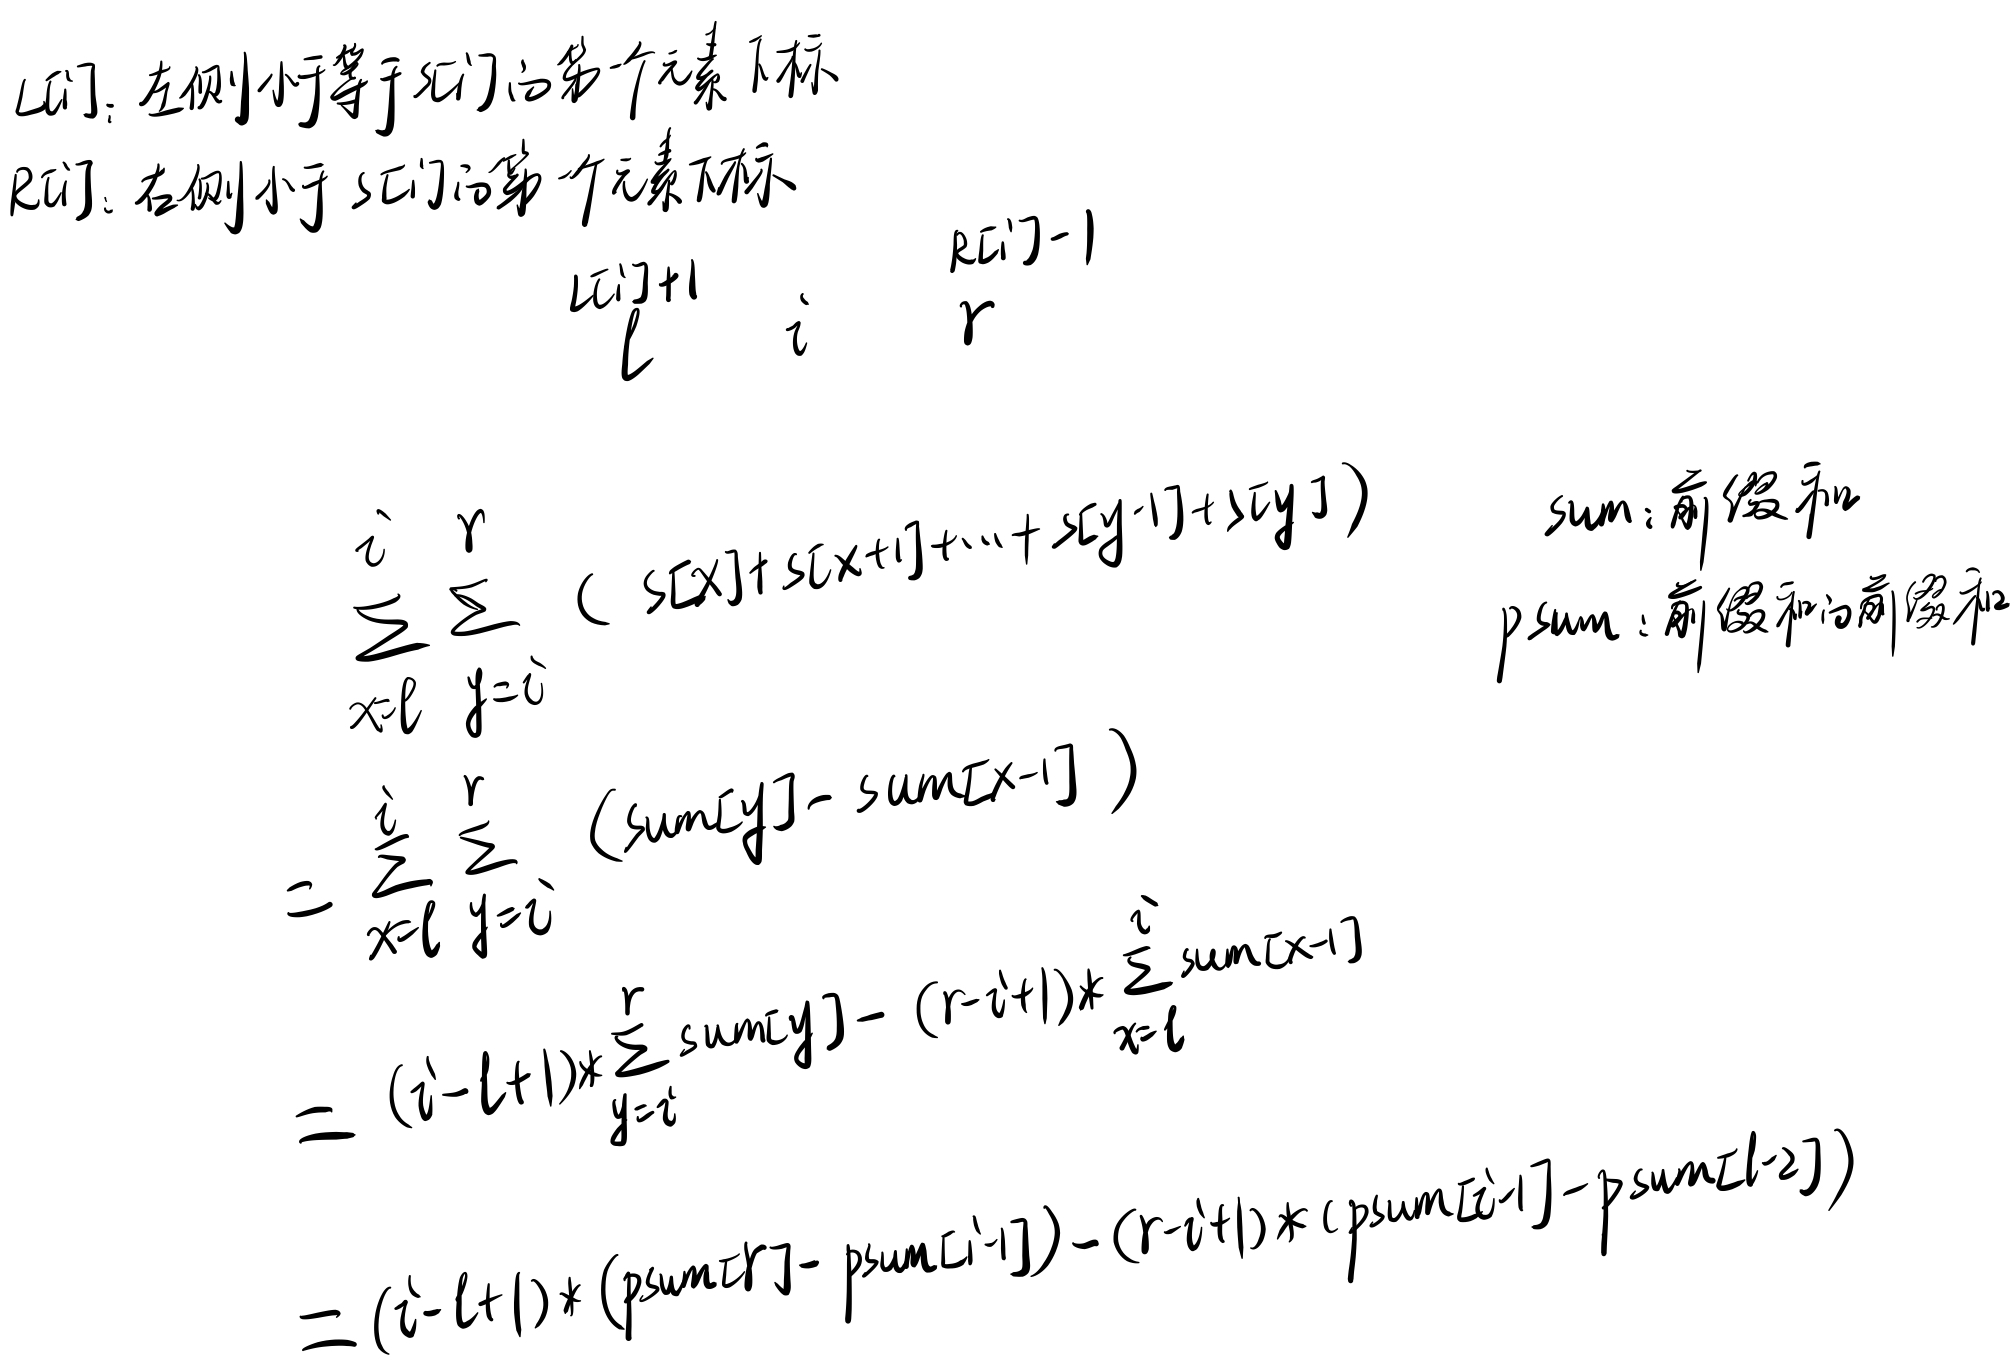 L[i]: 左侧小于等于s[i]的第一个元素下标
R[i]: 右侧小于s[i]的第一个元素下标
L[i]+1 R[i]-1
l i r
i r
∑ ∑ ( s[x]+s[x+1]+...+s[y-1]+s[y] ) sum: 前缀和
x=l y=i psum: 前缀和的前缀和
i r
= ∑ ∑ (sum[y]-sum[x-1])
x=l y=i
r i
= (i-l+1)*∑sum[y]-(r-i+1)*∑sum[x-1]
y=i x=l
=(i-l+1)*(psum[r]-psum[i-1])-(r-i+1)*(psum[i-1]-psum[l-2])